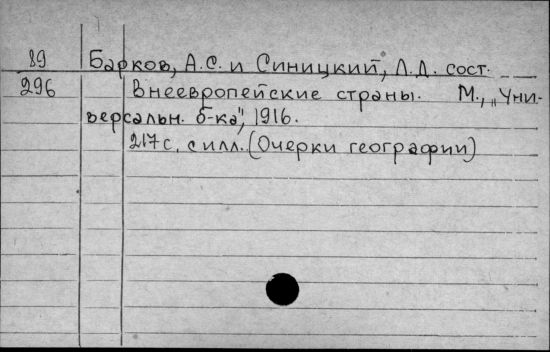 89 Барков, А.С. и Синицкий, Л.Д. сост.
296 Внеевропейские страны. М., „Уни-
версальн. б-ка", 1916.
217 с. с илл. (Очерки географии)